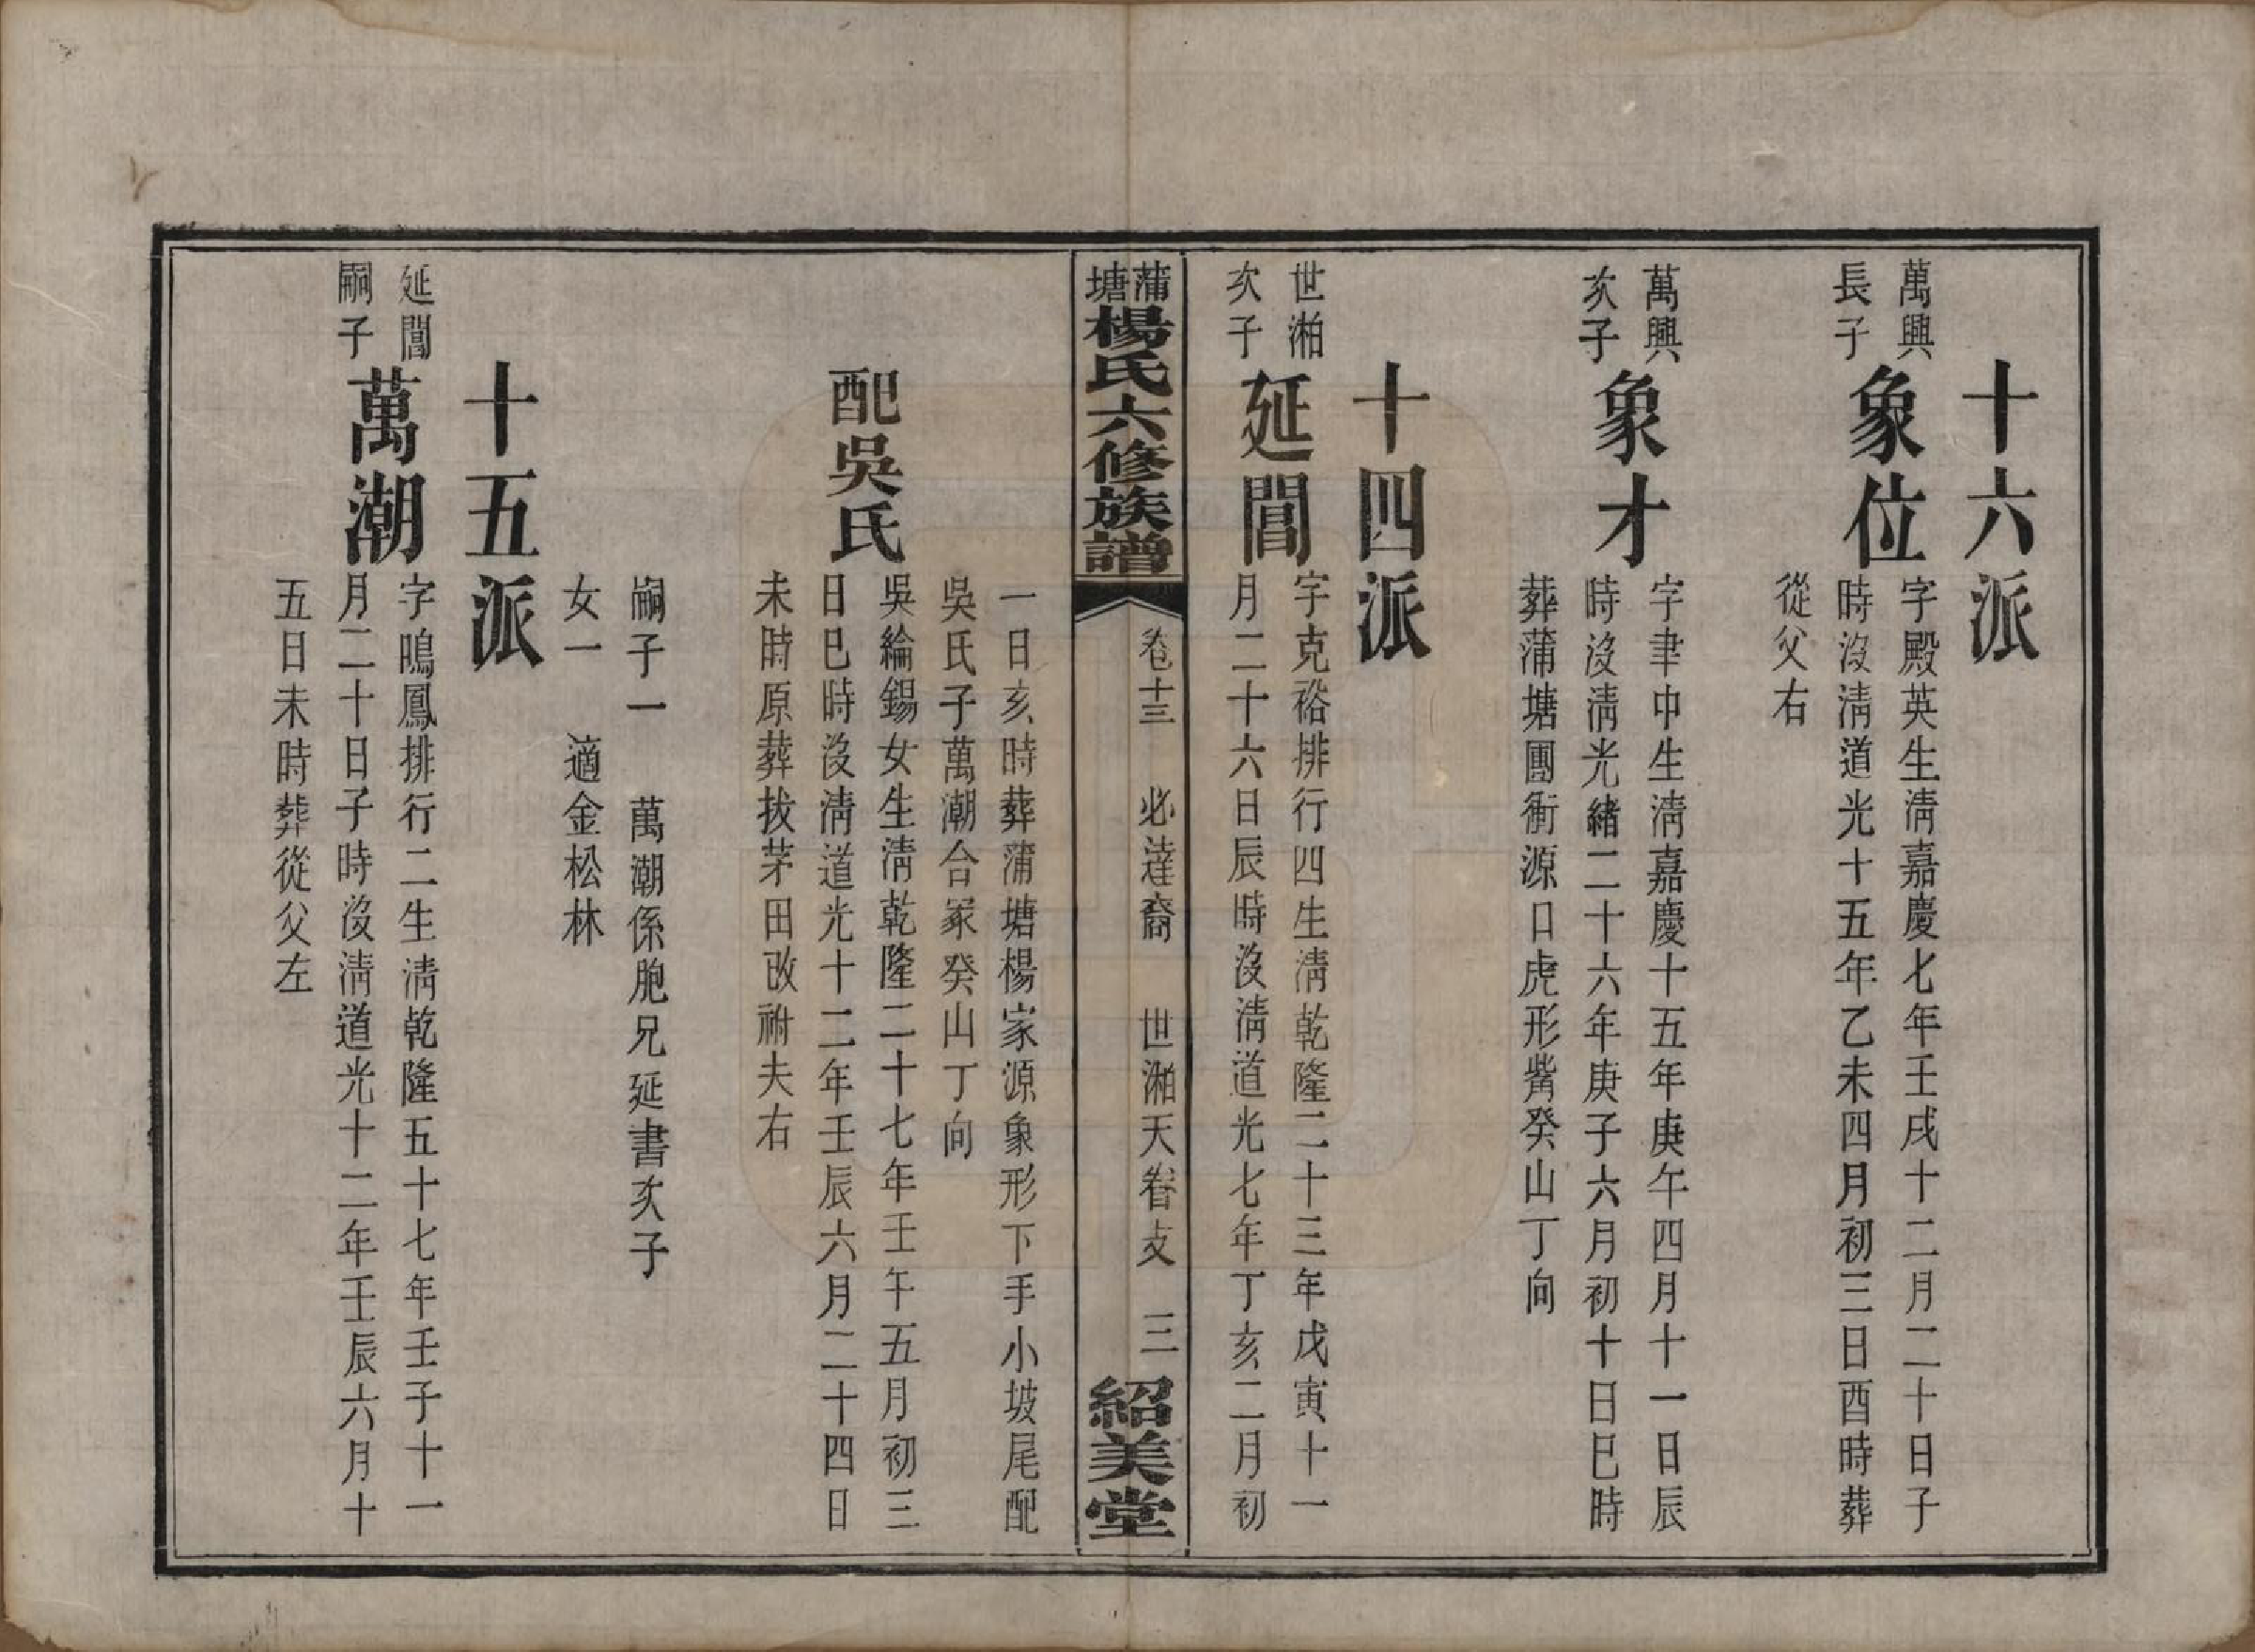 十六派
萬興
長子
象位
字殿英生淸嘉慶七年壬戌十二月二十日子
時沒淸道光十五年乙未四月初三日酉時葬
從父右
萬興
次子
象才
字聿中生淸嘉慶十五年庚午四月十一日辰
時沒淸光緒二十六年庚子六月初十日巳時
葬蒲塘團衝源口虎形觜癸山丁向
十四派
世湘
次子
延閶
字克裕排行四生淸乾隆二十三年戊寅十一
月二十六日辰時沒淸道光七年丁亥二月初
蒲塘楊氏六修族譜
卷十三 必達裔 世湘天眷支 三
紹美堂
一日亥時葬蒲塘楊家源象形下手小坡尾配
吳氏子萬潮合冢癸山丁向
配吳氏
吳綸錫女生淸乾隆二十七年壬午五月初三
日巳時沒淸道光十二年壬辰六月二十四日
未時原葬拔茅田改祔夫右
嗣子一 萬潮係胞兄延書次子
女一 適金松林
十五派
延閶
嗣子
萬潮
字鳴鳳排行二生淸乾隆五十七年壬子十一
月二十日子時沒淸道光十二年壬辰六月十
五日未時葬從父左